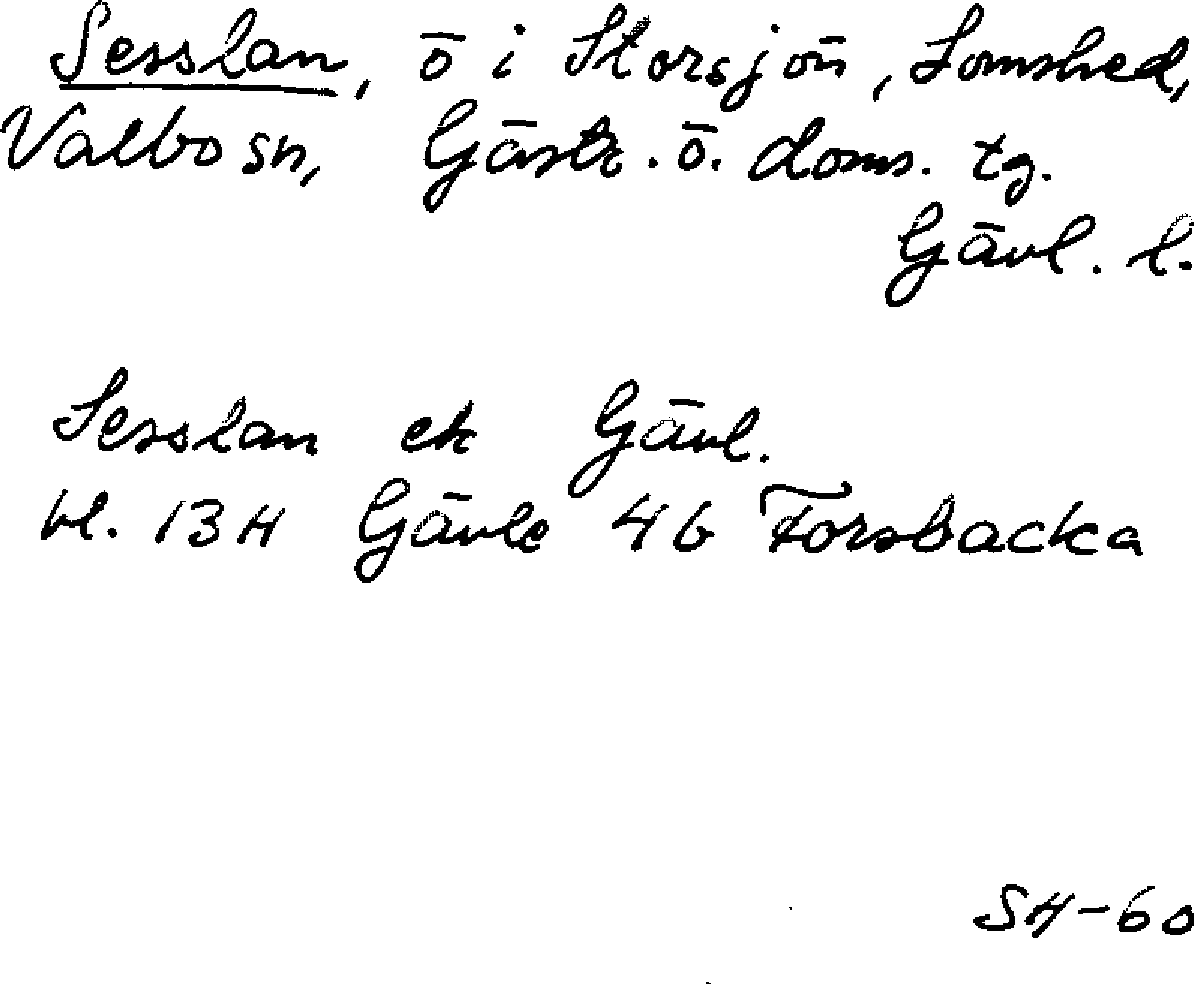 Sesslan, ö i Storsjön, Lomshed,
Valbo sn, Gästr. ö. doms. tg.
Gävl. l.
Sesslan ek Gävl.
bl. 13H Gävle 4b Forsbacka
SH-60